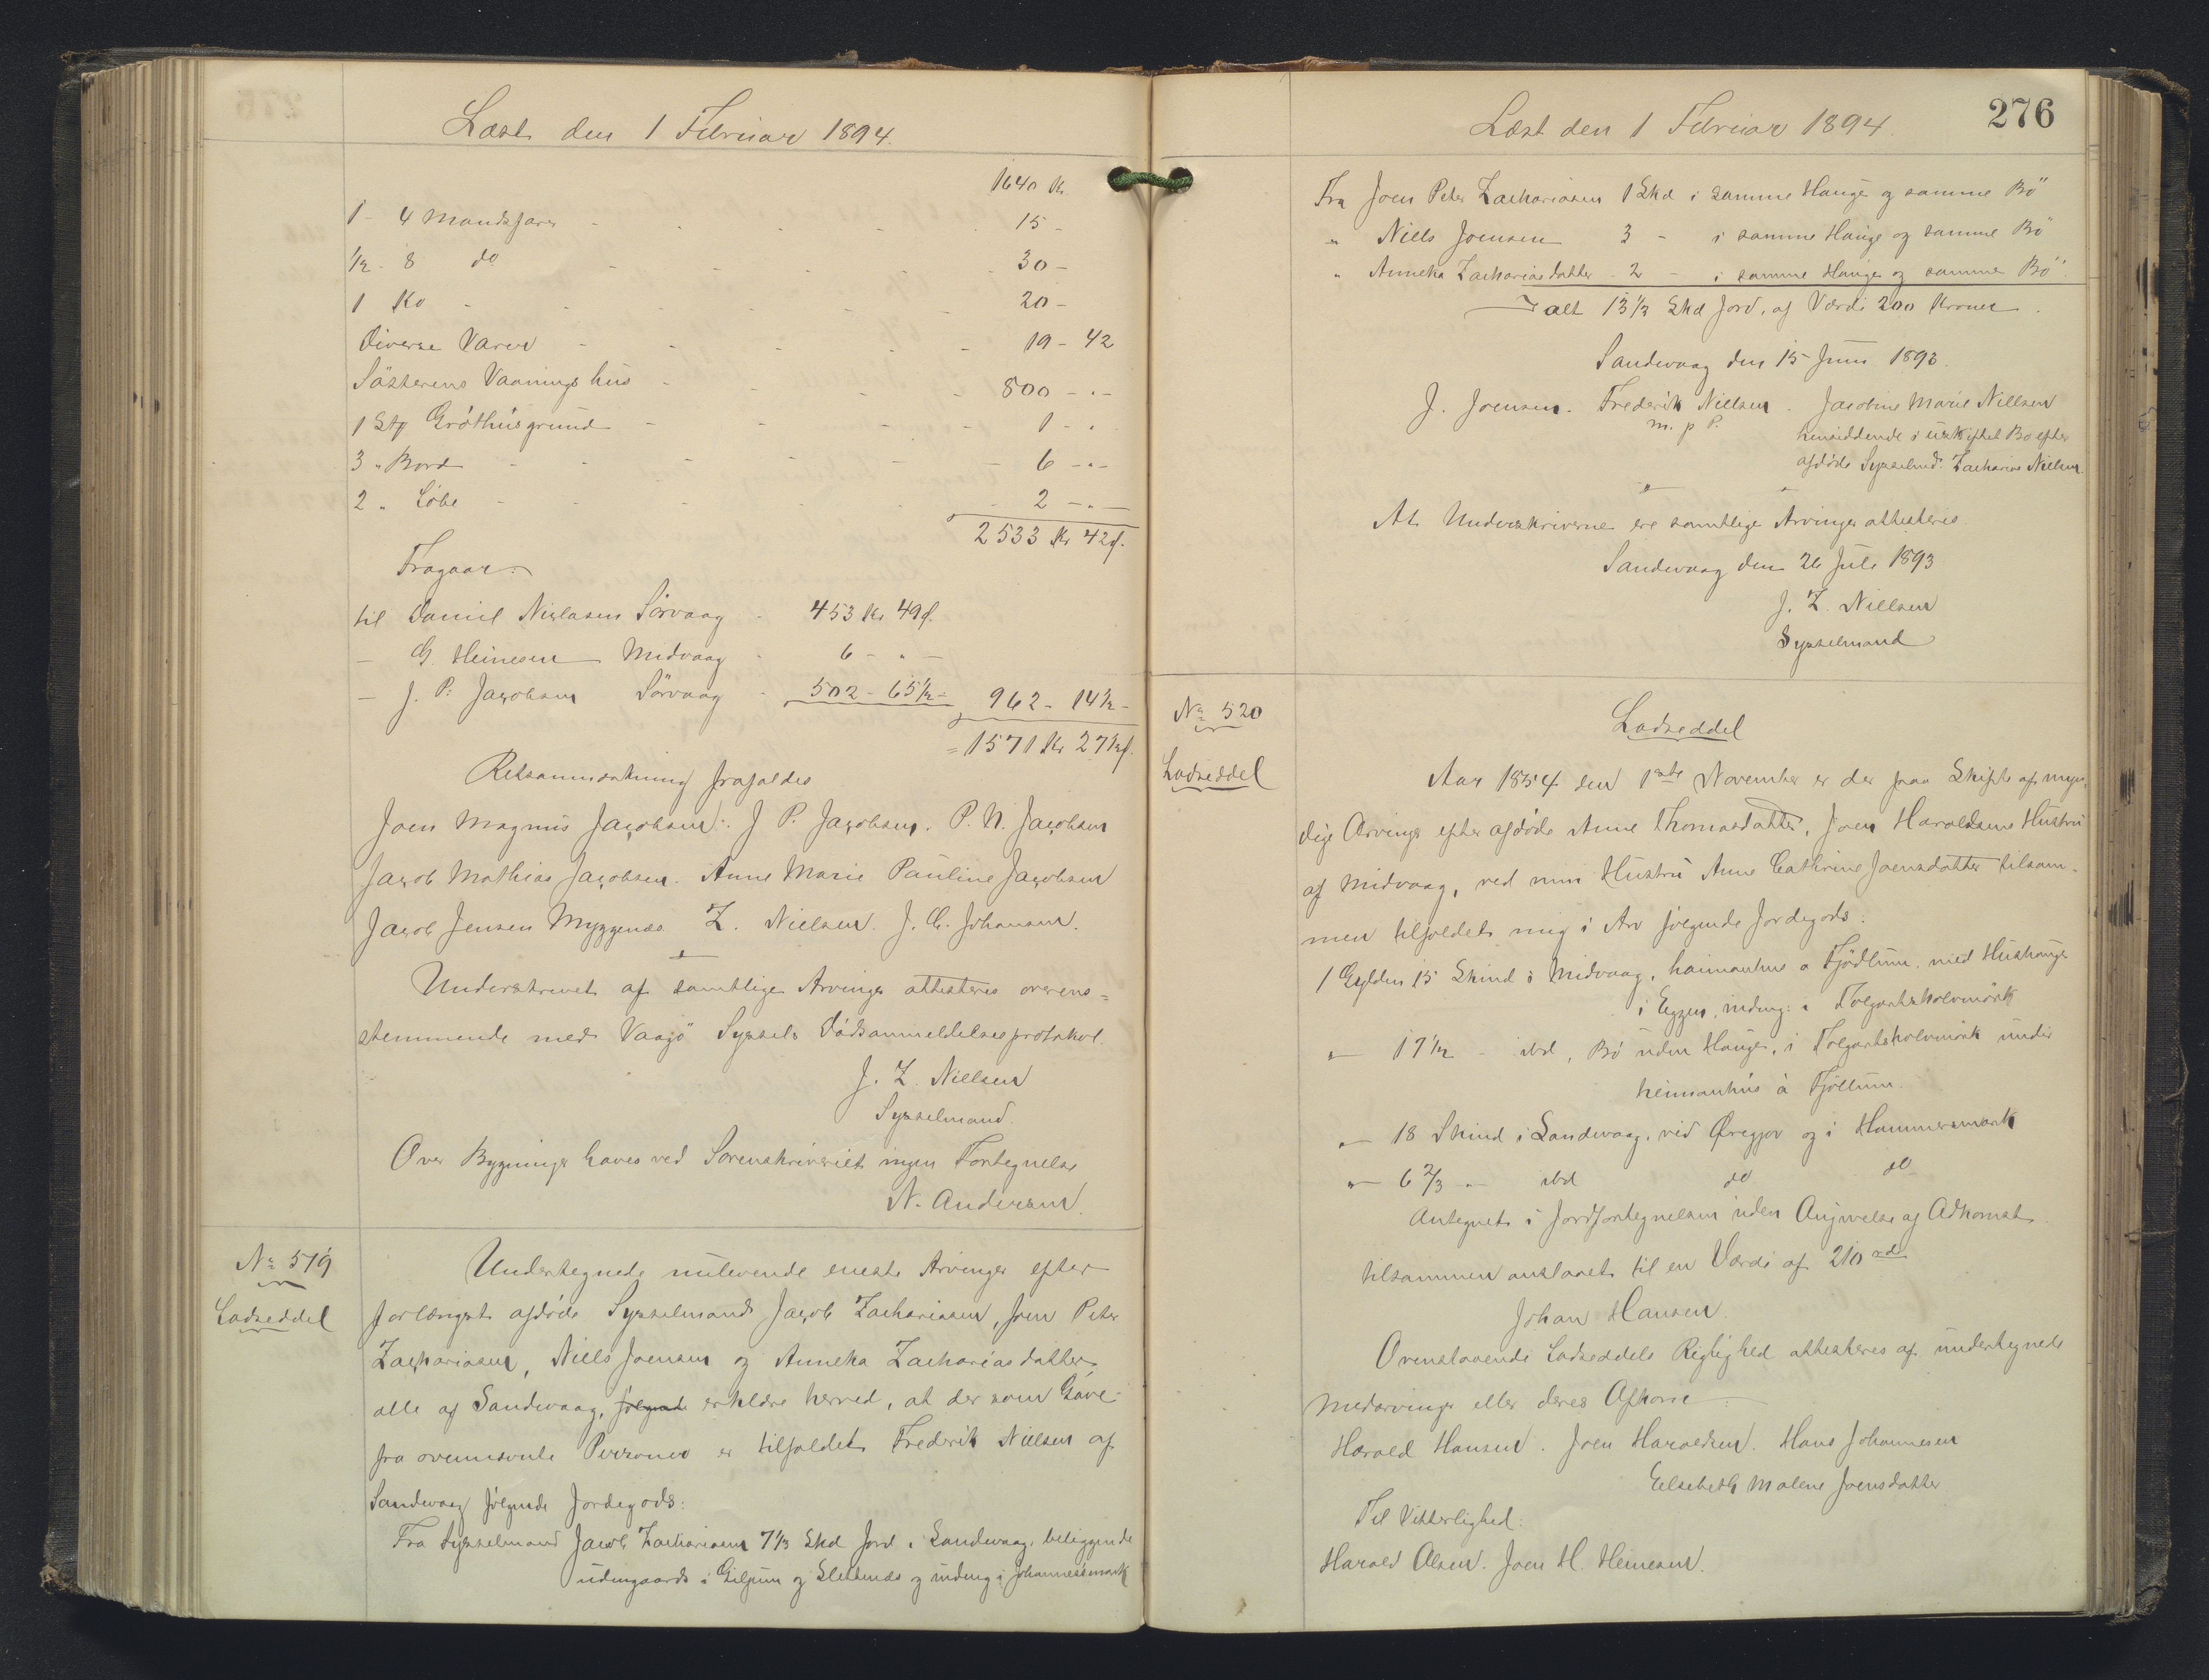 Læst den 1 Februar 1894.
1640 Kr
1 - 4 Mandsfar - 15 -
1/2 - 8 do - 30 -
1 Ko - 20 -
Diverse Varer - 19 - 42
Søsterens Vaaningshus - 800 - " -
1 Stk Gróthúsgrund - 1 - "
3 " Bord - 6 - " -
2 " Löbe - 2 - " -
2533 Kr 42 ø.
Fragaar:
til Daniel Niclasen Sörvaag - 453 Kr 49 ø.
- G. Heinesen Midvaag - 6 - " -
- J. P. Jacobsen Sörvaag - 502 - 65 1/2 - 962 - 14 1/2 -
= 1571 Kr 27 1/2 ø.
Retsanmærkning frafaldes
Joen Magnus Jacobsen. J P. Jacobsen. P. N. Jacobsen
Jacob Mathias Jacobsen. Anne Marie Pauline Jacobsen
Jacob Jensen Myggenæs. Z. Nielsen. J. C. Johansen.
Underskrevet af samtlige Arvinger attesteres overens=
stemmende med Vaagö Syssels Dödsanmeldelsesprotokol.
J. Z. Nielsen
Sysselmand.
Over Bygninger haves ved Sorenskriveriet ingen Fortegnelse
N. Andersen.
No 519
Lodseddel
Undertegnede nulevende eneste Arvinger efter
forlængst afdöde Sysselmand Jacob Zachariasen, Joen Peter
Zachariasen, Niels Joensen og Anneka Zachariasdatter
alle af Sandevaag, følgende erklære herved, at der som Gave
fra ovennævnte Personer er tilfaldet Frederik Nielsen af
Sandevaag fölgende Jordegods:
Fra Sysselmand Jacob Zachariasen 7 1/3 Skd Jord i Sandevaag, beliggende
udengaards i Giljum og Slettenæs og indeng i Johannesemark
Læst den 1 Februar 1894.
276
Fra Joen Peter Zachariasen 1 Skd i samme Hauge og samme Bö
" Niels Joensen 3 - i samme Hauge og samme Bö
" Anneka Zachariasdatter - 2 - i samme Hauge og samme Bö.
I alt 13 1/3 Skd Jord, af Værdi 200 Kroner.
Sandevaag den 15 Juni 1893.
J. Joensen. Frederik Nielsen. Jacobine Marie Nielsen
m. p P. hensiddende i uskiftet Bo efter
afdöde Sysselmd. Zacharias Nielsen.
At Underskriverne ere samtlige Arvinger attesteres.
Sandevaag den 26 Juli 1893
J. Z. Nielsen
Sysselmand
No 520
Lodseddel
Lodseddel
Aar 1854 den 1ste November er der paa Skifte af myn-
dige Arvinger efter afdöde Anne Thomasdatter, Joen Haraldsens Hustru
af Midvaag, ved min Hustru Anne Cathrine Joensdatter tilsam-
men tilfaldet mig i Arv fölgende Jordegods:
1 Gylden 15 Skind i Midvaag, haimanhus a Fjödlum, med Hushauge
i Eggen, indeng: i
" - 17 1/2 - ibd, Bö uden Hauge, i under
heimanhús á Fjöllum.
" - 18 Skind i Sandevaag, ved Øregjov og i Hammersmark
" - 6 2/3 - " - ibd do do
Antegnet i Jordfortegnelsen uden Angivelse af Adkomst
tilsammen anslaaet til en Værdi af 210 rd
Johan Hansen.
Ovenstaaende Lodseddels Rigtighed attesteres af undertegnede
Medarvinger eller deres Afkom:
Harald Hansen. Joen Haraldsen. Hans Johannesen
Elsebeth Malene Joensdatter
Til Vitterlighed:
Harald Olsen. Joen H. Heinesen.